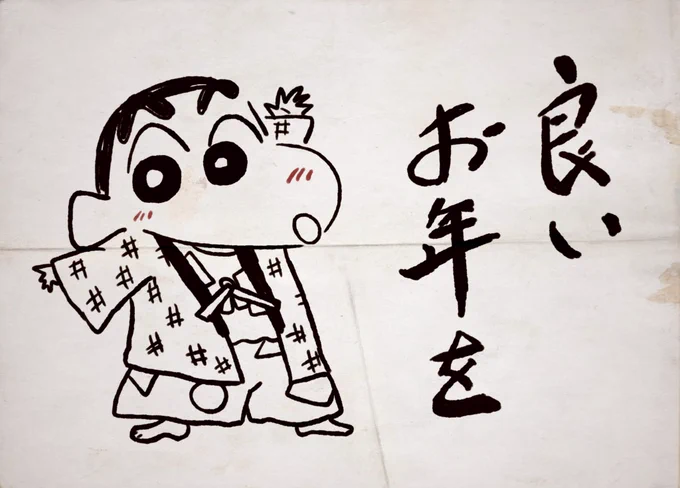 良い
お年を